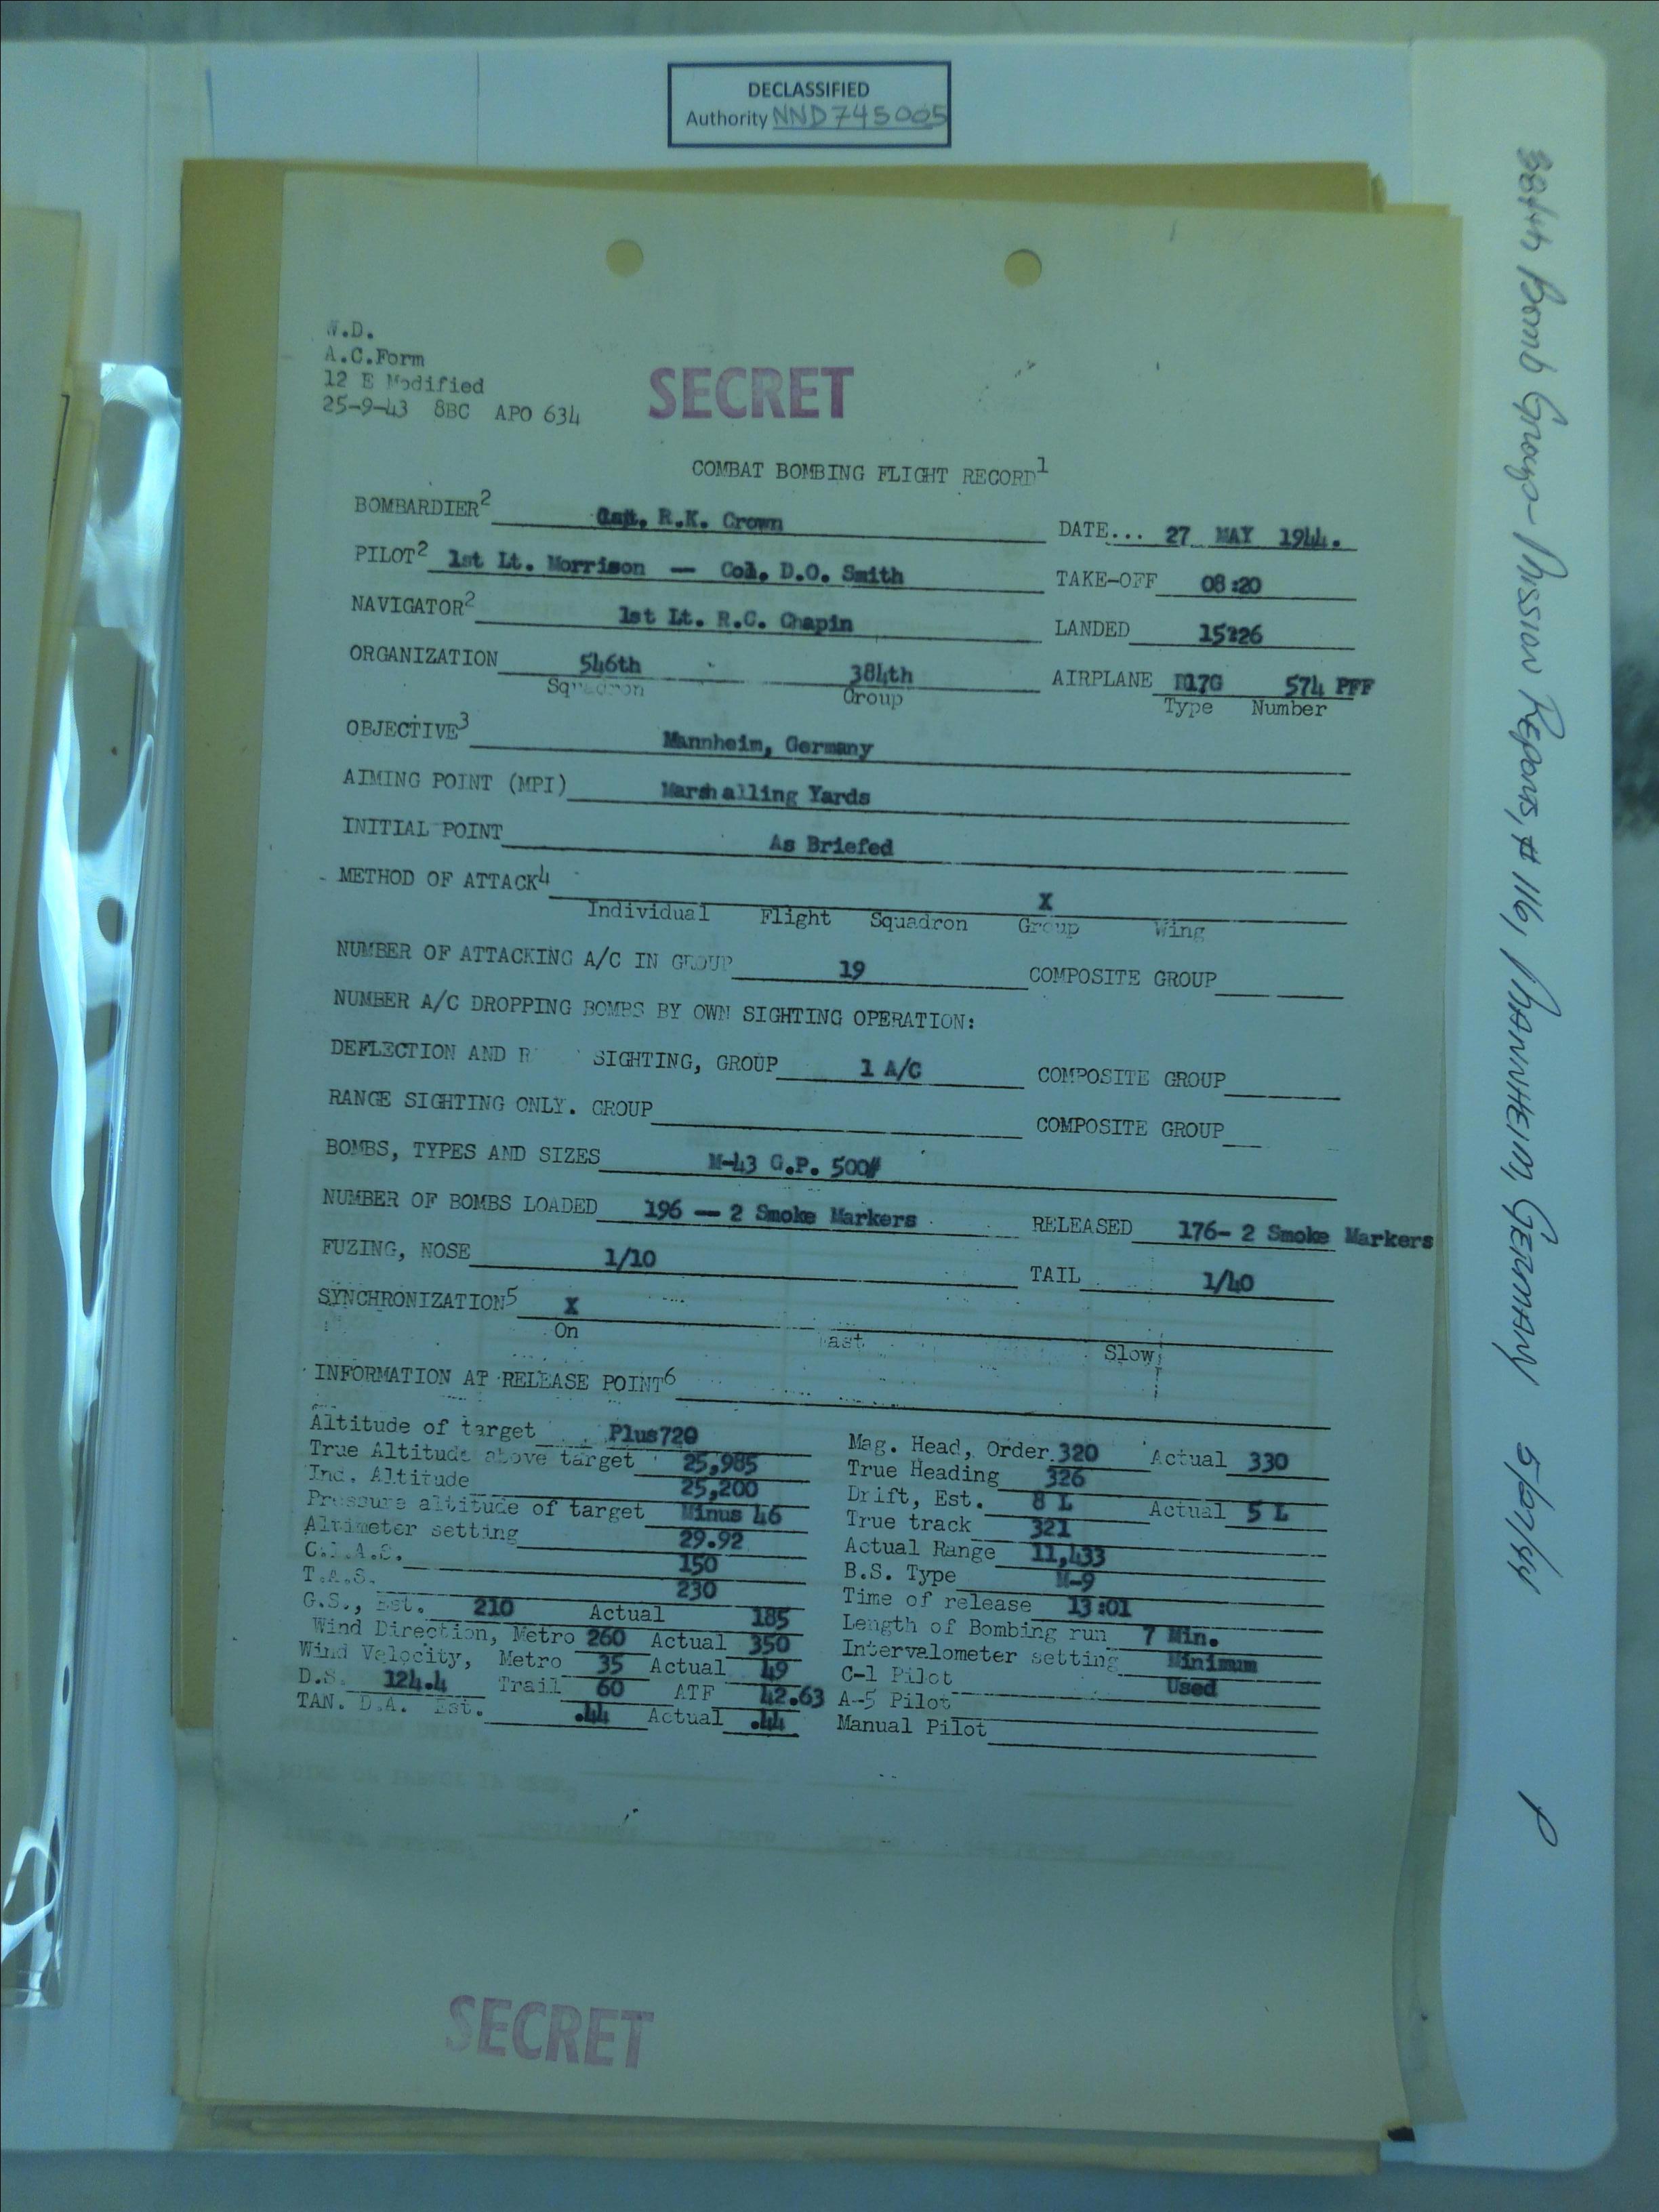 DECLASSIFIED
Authority NND745005
W.D.
A.C.Form
12 E Modified
25-9-43 8BC APO 634
SECRET
COMBAT BOMBING FLIGHT RECORD1
BOMBARDIER2 Cap. R.K. Crown DATE... 27 MAY 1944.
PILOT2 1st Lt. Morrison — Col. D.O. Smith TAKE-OFF 08:20
NAVIGATOR2 1st Lt. R.C. Chapin LANDED 15226
ORGANIZATION 546th 384th AIRPLANE B17G 574 PFF
Squadron Group Type Number
OBJECTIVE3 Mannheim, Germany
AIMING POINT (MPI) Marshalling Yards
INITIAL POINT As Briefed
METHOD OF ATTACK4 X
Individual Flight Squadron Group Wing
NUMBER OF ATTACKING A/C IN GROUP 19 COMPOSITE GROUP
NUMBER A/C DROPPING BOMBS BY OWN SIGHTING OPERATION:
DEFLECTION AND SIGHTING, GROUP 1 A/C COMPOSITE GROUP
RANGE SIGHTING ONLY. GROUP COMPOSITE GROUP
BOMBS, TYPES AND SIZES M-43 G.P. 500#
NUMBER OF BOMBS LOADED 196 — 2 Smoke Markers RELEASED 176- 2 Smoke Markers
FUZING, NOSE 1/10 TAIL 1/40
SYNCHRONIZATION5 X
On Fast Slow
INFORMATION AT RELEASE POINT6
Altitude of target Plus720 Mag. Head, Order 320 Actual 330
True Altitude above target 25,985 True Heading 326
Ind. Altitude 25,200 Drift, Est. 8 L Actual 5 L
Pressure altitude of target Minus 46 True track 321
Altimeter setting 29.92 Actual Range 11,433
C.I.A.S. 150 B.S. Type M-9
T.A.S. 230 Time of release 13:01
G.S., Est. 210 Actual 185 Length of Bombing run 7 Min.
Wind Direction, Metro 260 Actual 350 Intervalometer setting Minimum
Wind Velocity, Metro 35 Actual 49 C-1 Pilot Used
D.S. 124.4 Trail 60 ATF 42.63 A-5 Pilot
TAN. D.A. Est. .44 Actual .44 Manual Pilot
SECRET
384th Bomb Group - Mission Reports, # 116, MANNHEIM, GERMANY 5/27/44 P